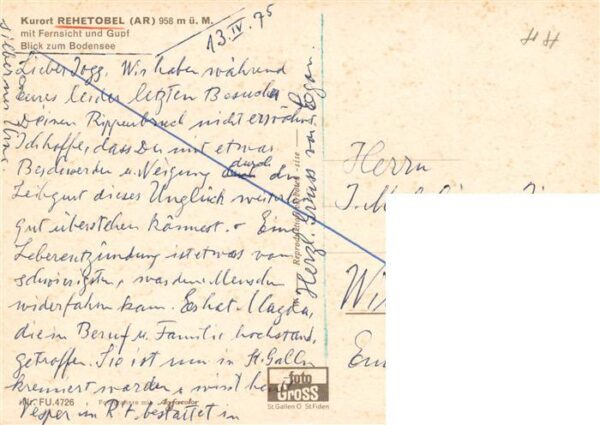 Kurort REHETOBEL (AR) 958 m ü. M.
mit Fernsicht und Gupf
Blick zum Bodensee
13.IV.75
Lieber Jogg. Wir haben während
eures leider letzten Besuches
Deinen Rippenbruch nicht erwähnt.
Ich hoffe, dass Du mit etwas
Beschwerden u. Neigung durch den
Leibgurt dieses Unglück weiterhin
gut überstehen kannst. Eine
Leberentzündung ist etwas vom
schwierigsten, was dem Menschen
widerfahren kann. Es hat Magda,
die in Beruf u. Familie hochstand,
getroffen. Sie ist nun in St. Gallen
kremiert worden, u. wird heute
Vesper in R't. bestattet in
silberner Urne.
Herzl. Gruss von Egon.
Herrn
J. M
Nr. FU.4726
Agfacolor
foto
GROSS
St.Gallen O St.Fiden